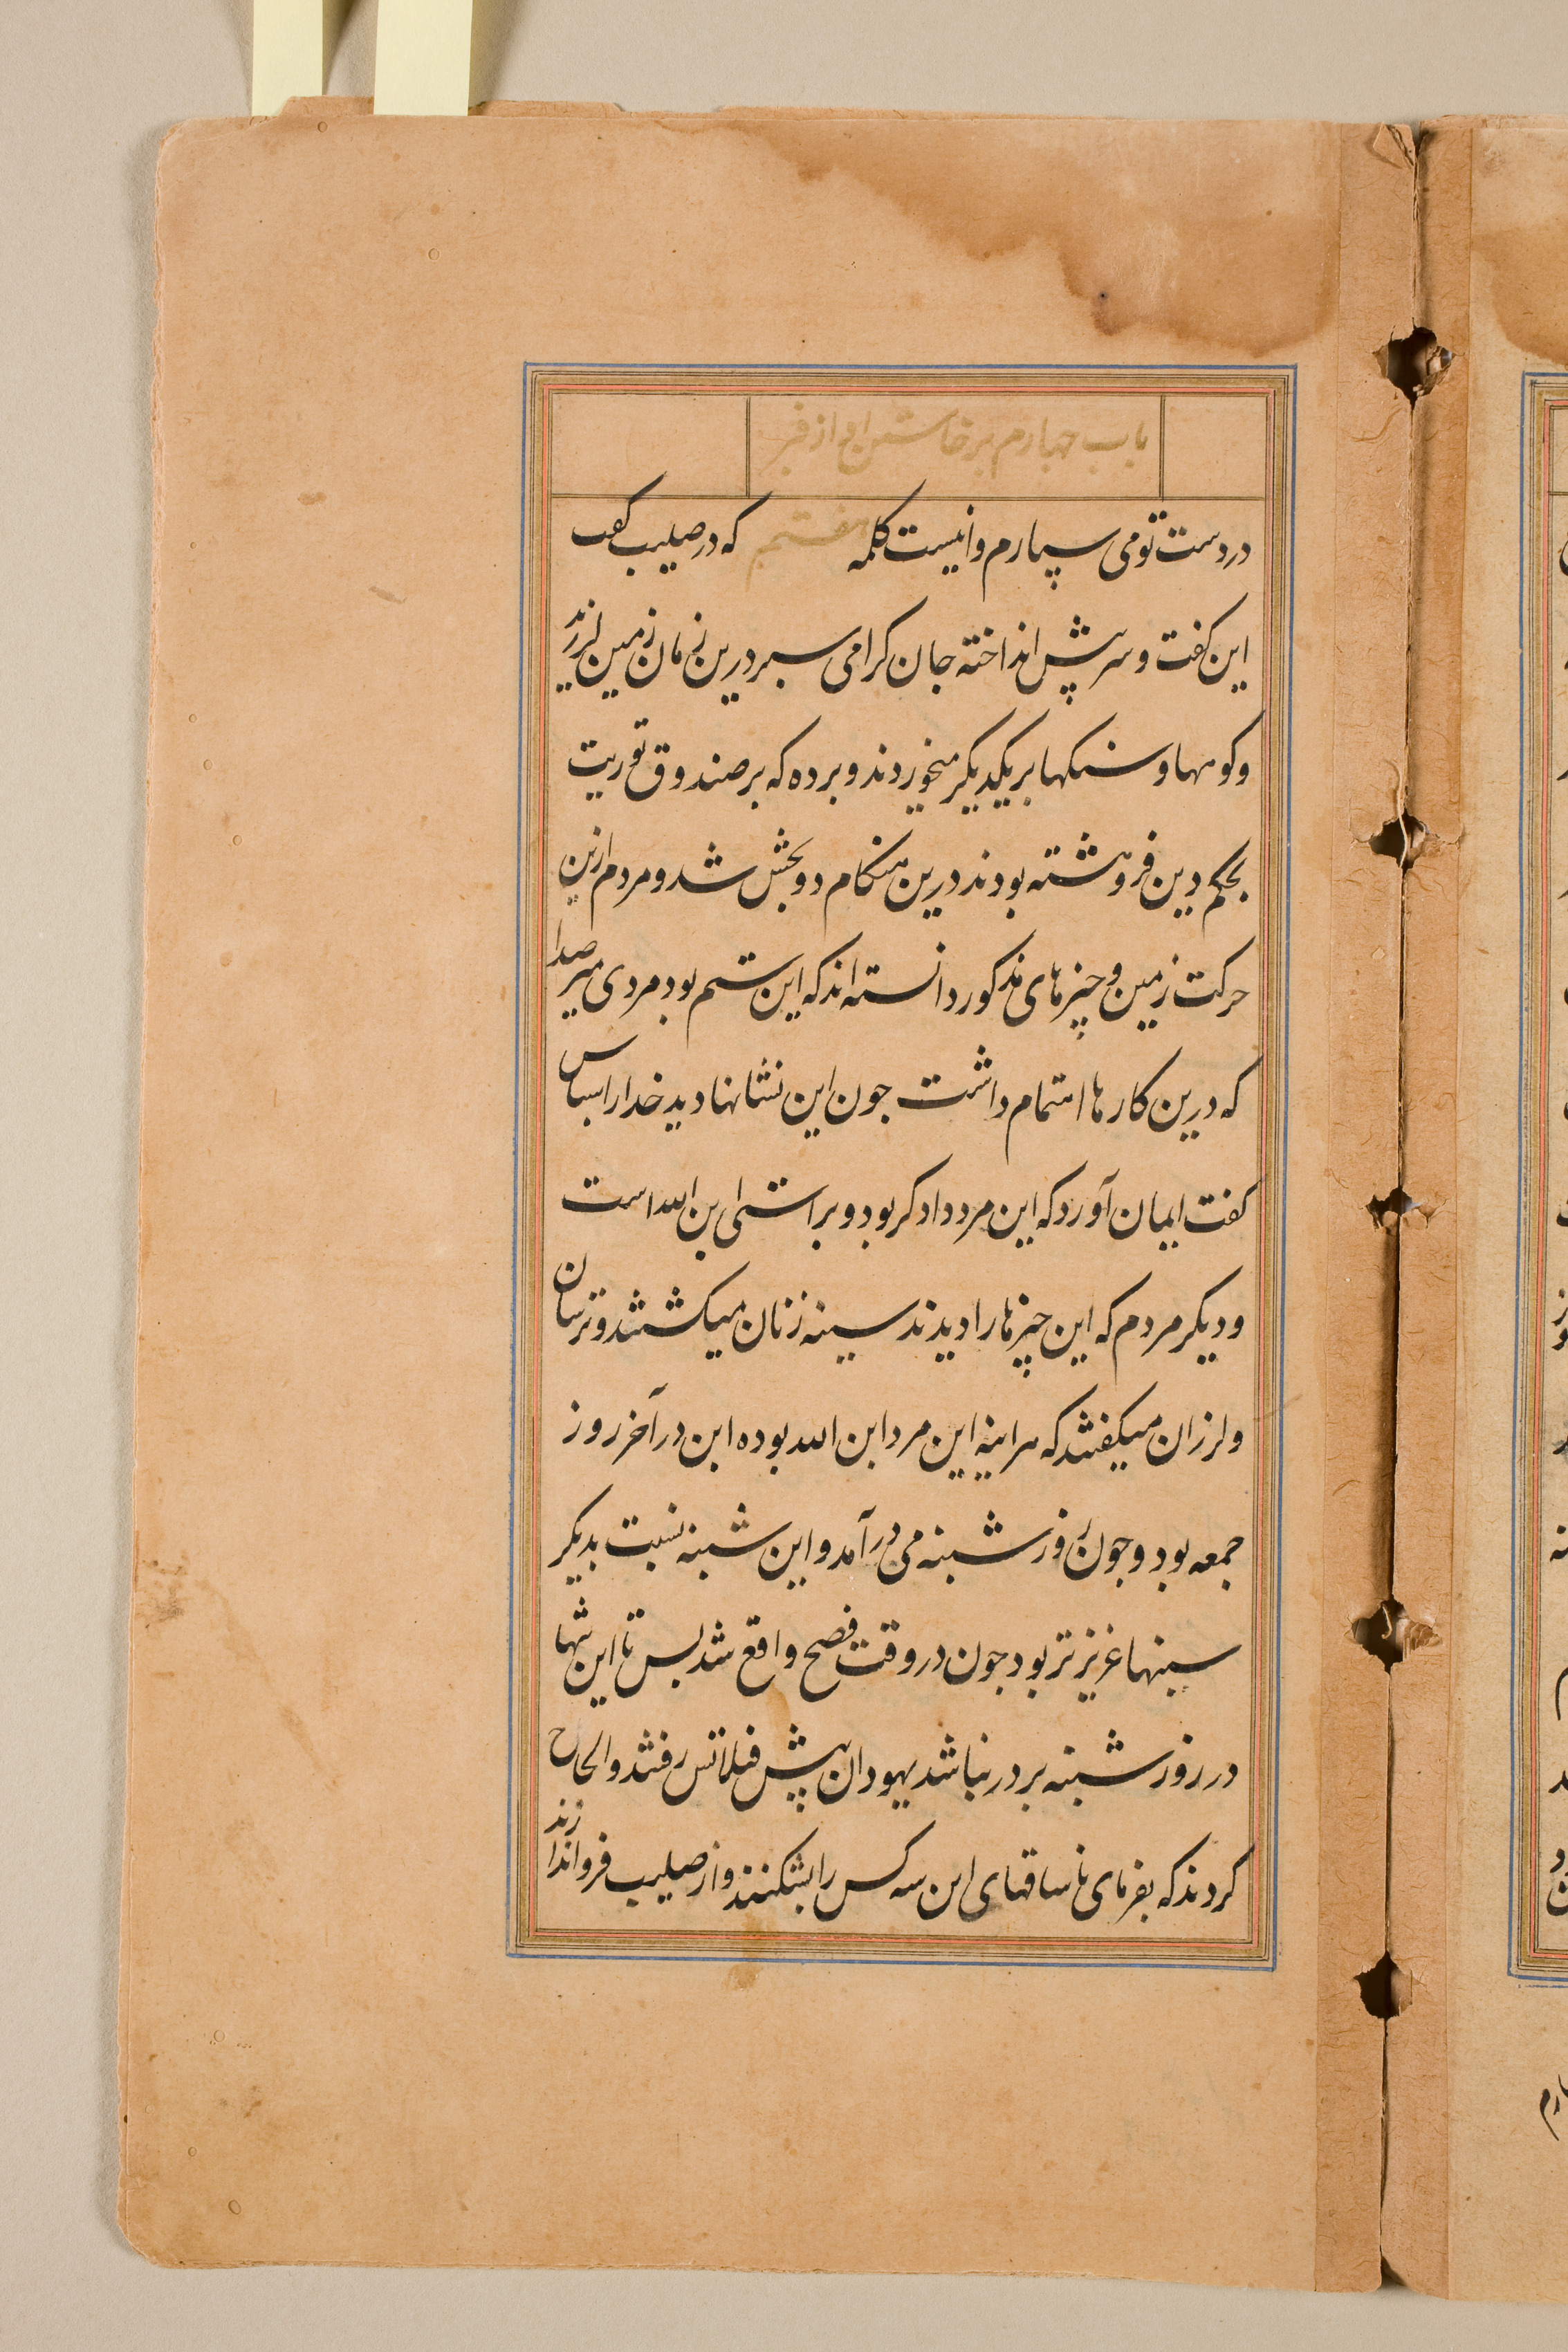 باب چهارم برخاستن او از قبر
در دست تو می سپارم و اینست کلمه هفتم که در صلیب گفت
این گفت و سر پیش انداخته جان کرامی سپرد درین زمان زمین لرزید
و کوهها و سنکها بر یکدیکر میخوردند و پرده که بر صندوق توریت
بحکم دین فروهشته بودند درین هنکام دو بخش شد و مردم ازین
حرکت زمین و چیزهای مذکور دانسته اند که این ستم بود مردی میر صدا
که درین کارها اهتمام داشت چون این نشانها دید خدا را سپاس
کفت ایمان آورد که این مرد دادکر بود و براستی ابن الله است
و دیکر مردم که این چیزها را دیدند سینه زنان میکشتند و ترسان
و لرزان میکفتند که هراینه این مرد ابن الله بوده این در آخر روز
جمعه بود و چون روز شنبه می درآمد و این شنبه نسبت بدیکر
شنبها عزیزتر بود چون در وقت فصح واقع شد پس تا این تنها
در روز شنبه بر در نباشد یهودان پیش فیلاتس رفتند و الحاح
کردند که بفرمای تا ساقهای این سه کس را بشکنند و از صلیب فرو اندازند